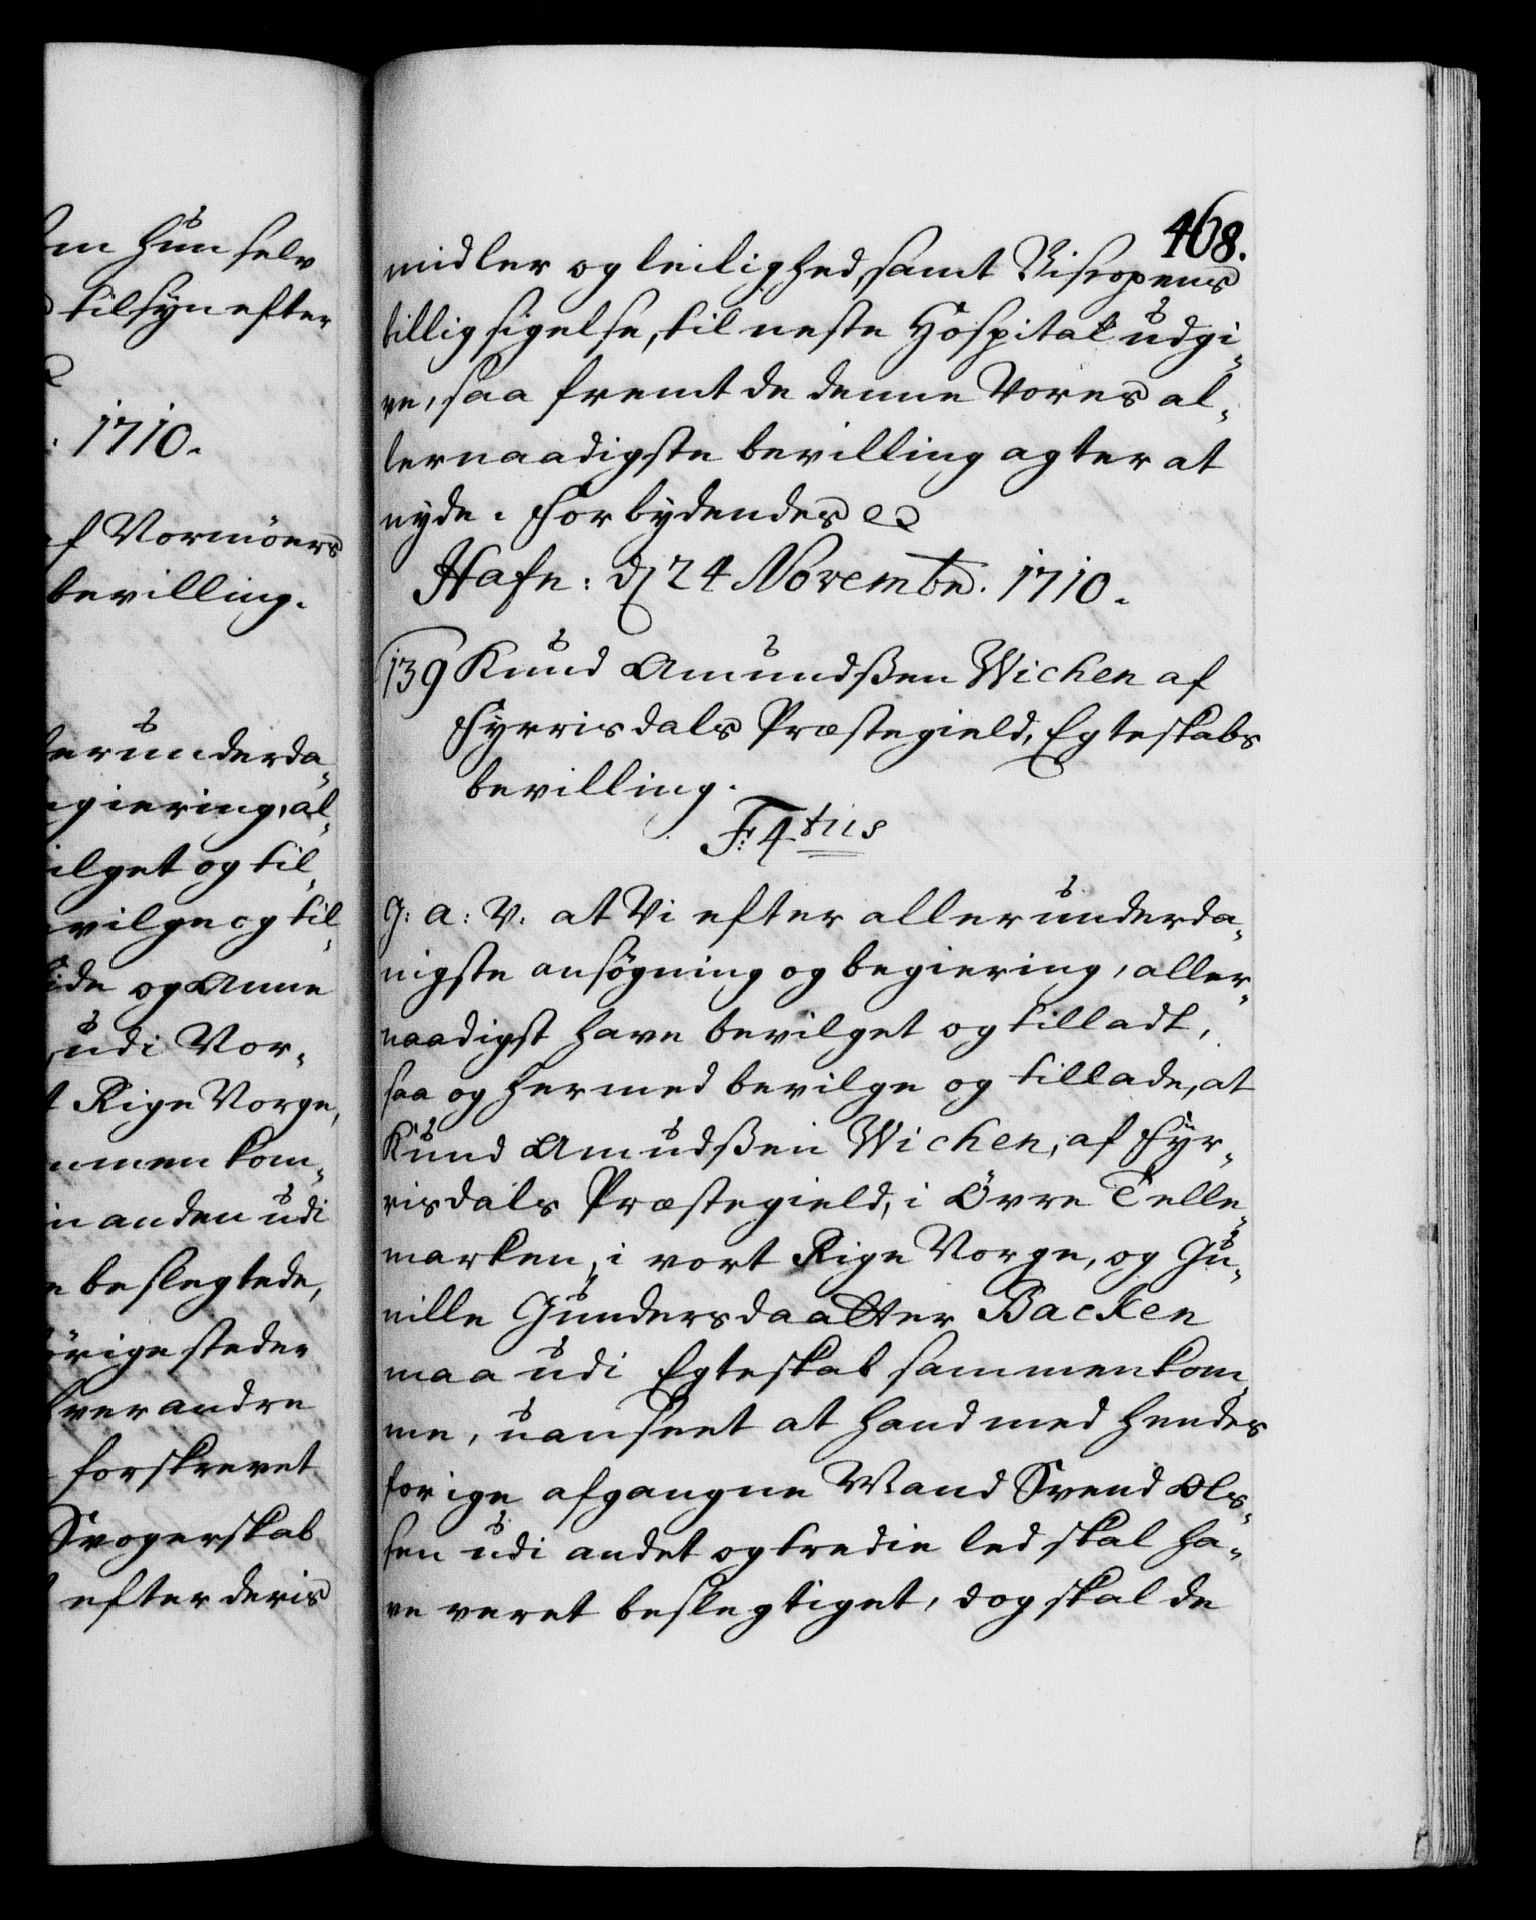 m hun selv
tilsyn efter
: 1710.
af Vormöers
bevilling.
lerunderda-
egiering, al-
ilget og til-
vilge og til-
ide og Anne
, udi Vor-
t Rige Norge,
ammen kom-
in anden udi
e beslegtede,
örige steder
hver andre
forskrevet
Svogerskab
efter deris
468.
midler og leilighed, samt Biscopens
tilligsigelse, til neste Hospital udgi-
ve, saa fremt de denne Vores al-
lernaadigste bevilling agter at
nyde. Forbydendes &c
Hafn: d 24 Novembr. 1710.
139 Knud Amundßen Wichen af
Fyrrisdals Præstegield, Egteskabs
bevilling.
F: 4tus
G: A: V. at Vi efter allerunderda-
nigste ansögning og begiering, aller-
naadigst have bevilget og tilladt,
saa og hermed bevilge og tillade, at
Knud Amudßen Wichen, af Fyr-
risdals Præstegield, i Övre Telle-
marken, i vort Rige Norge, og Gu-
nille Gundersdaatter Backen
maa udi Egteskab sammenkom-
me, uanseet at hand med hendes
forige afgangne Mand Svend Ols-
sen udi andet og tredie led skal ha-
ve veret beslegtiget, dog skal de